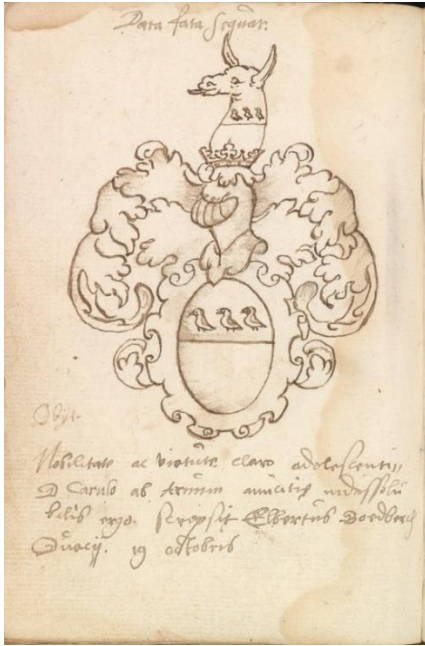 Data fata sequar.
Obijt.
Nobilitate ac virtute claro adolescenti
D Carolo ab amicitiæ indissolu
bilis ergo. scripsit Elbertus
Duacij. 19 octobris